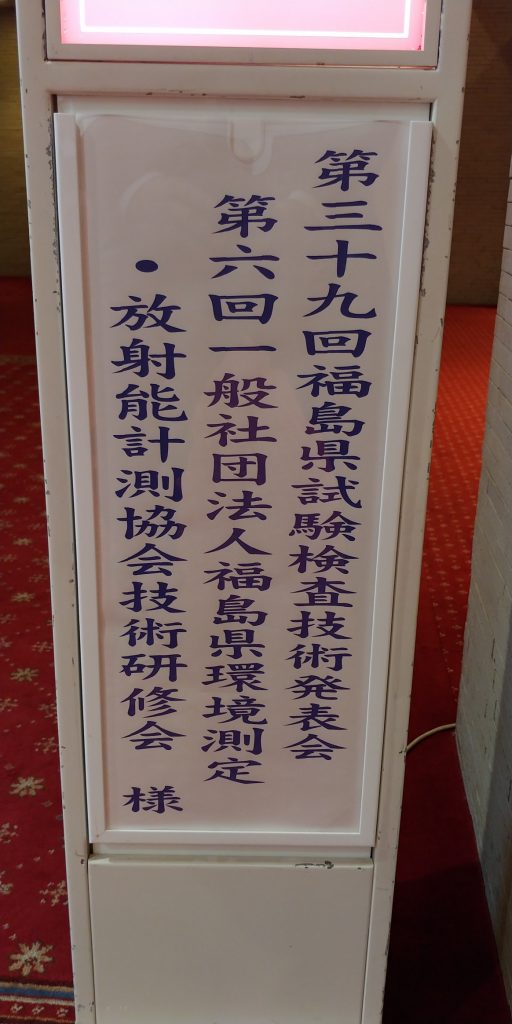 第三十九回福島県試験検査技術発表会
第六回一般社団法人福島県環境測定
・放射能計測協会技術研修会　様